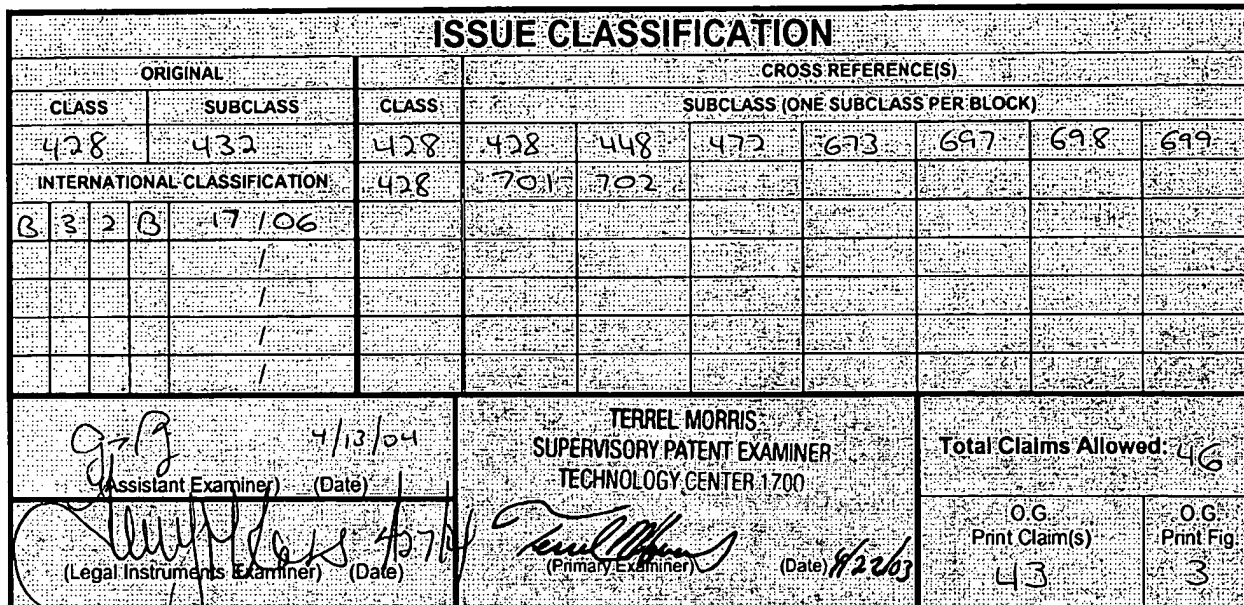 ISSUE CLASSIFICATION
ORIGINAL CROSS REFERENCE(S)
CLASS SUBCLASS CLASS SUBCLASS (ONE SUBCLASS PER BLOCK)
428 432 428 428 448 472 673 697 698 699
INTERNATIONAL CLASSIFICATION 428 701 702
B 3 2 B 17 / 06
/
/
/
/
4/13/04
(Assistant Examiner) (Date)
(Legal Instruments Examiner) (Date)
TERREL MORRIS
SUPERVISORY PATENT EXAMINER
TECHNOLOGY CENTER 1700
(Primary Examiner) (Date) 4/22/03
Total Claims Allowed: 46
O.G.
Print Claim(s)
43
O.G.
Print Fig.
3